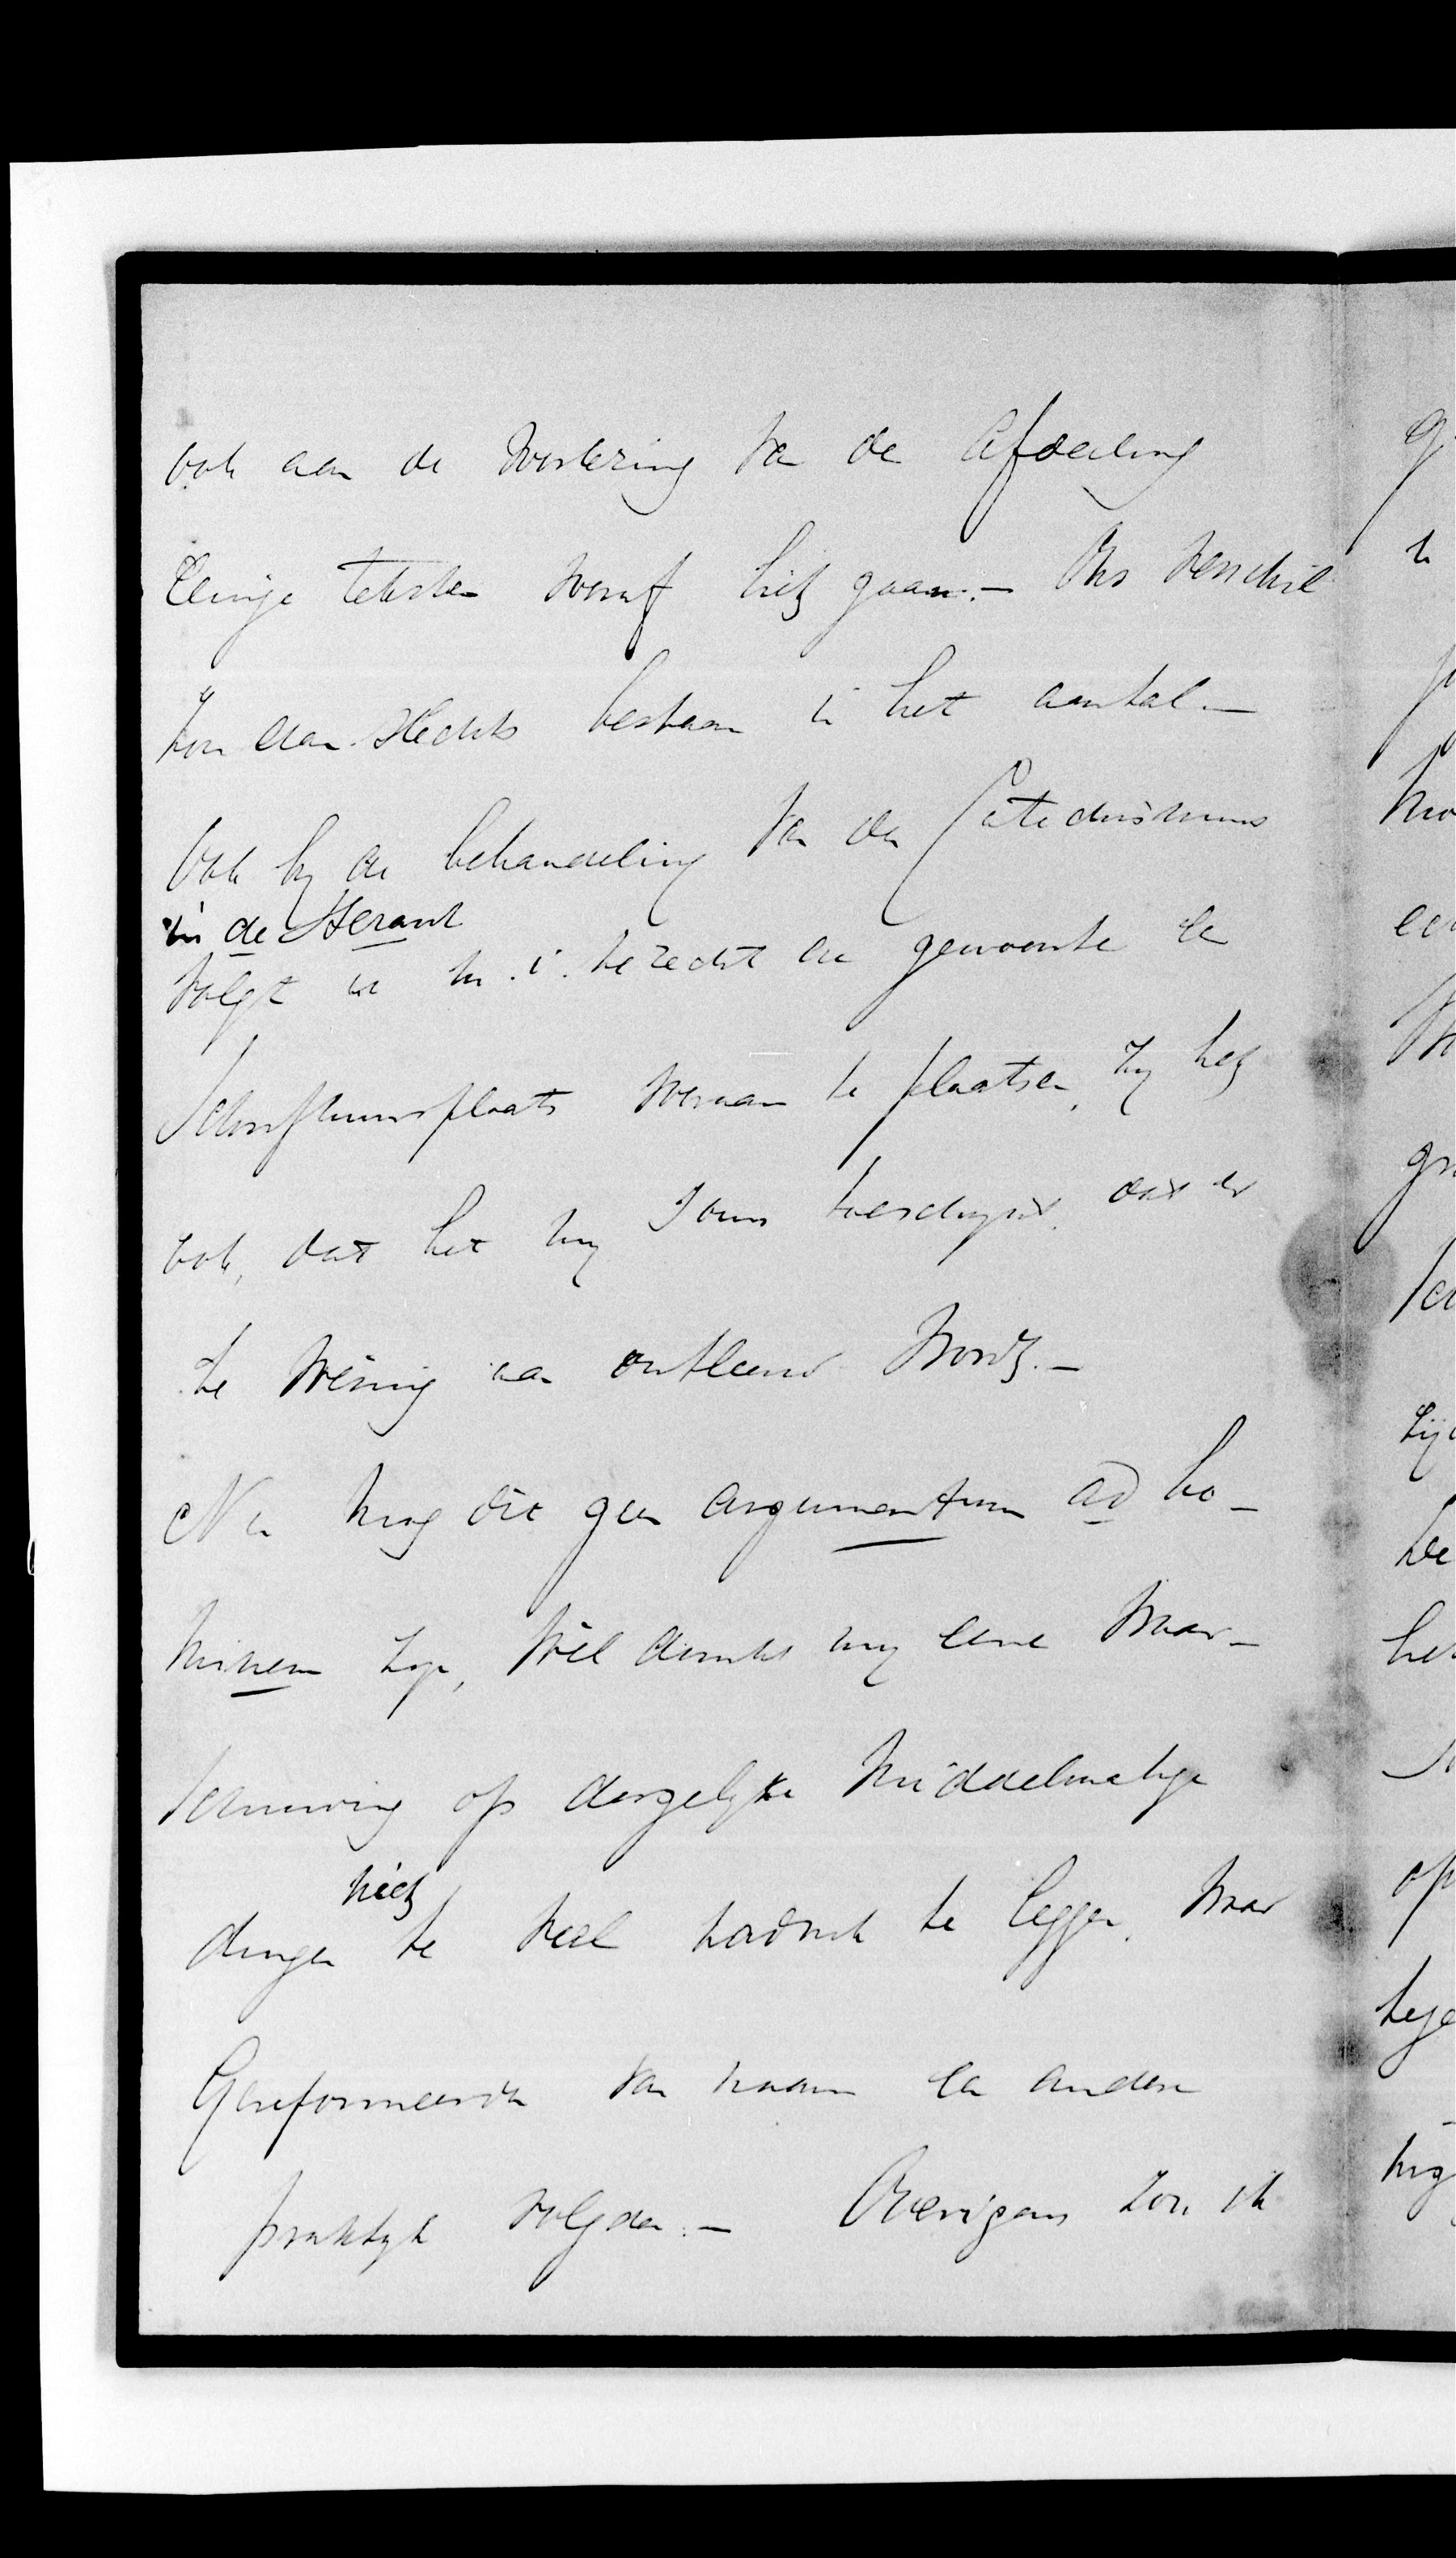 ook aan de voorlezing van de afdeeling
Eenige teksten vooraf liet gaan. – Ons verschil
zou dan slechts bestaan in het aantal. –
Ook by de behandeling van den Catechismus
in de Heraut
volgt u m. i. te recht de gewoonte een
Schriftuurplaats vooraan te plaatsen, zij het
ook, dat het my soms toeschynt, dat er
te weinig aan ontleend wordt. –
Nu mag dit geen argumentum ad ho-
minem zyn, wel dunkt my eene waar-
schuwing op dergelyke middelmatige
dingen niet te veel nadruk te leggen, waar
Gereformeerden van naam een andere
praktyk volgden. – Overigens zou ik